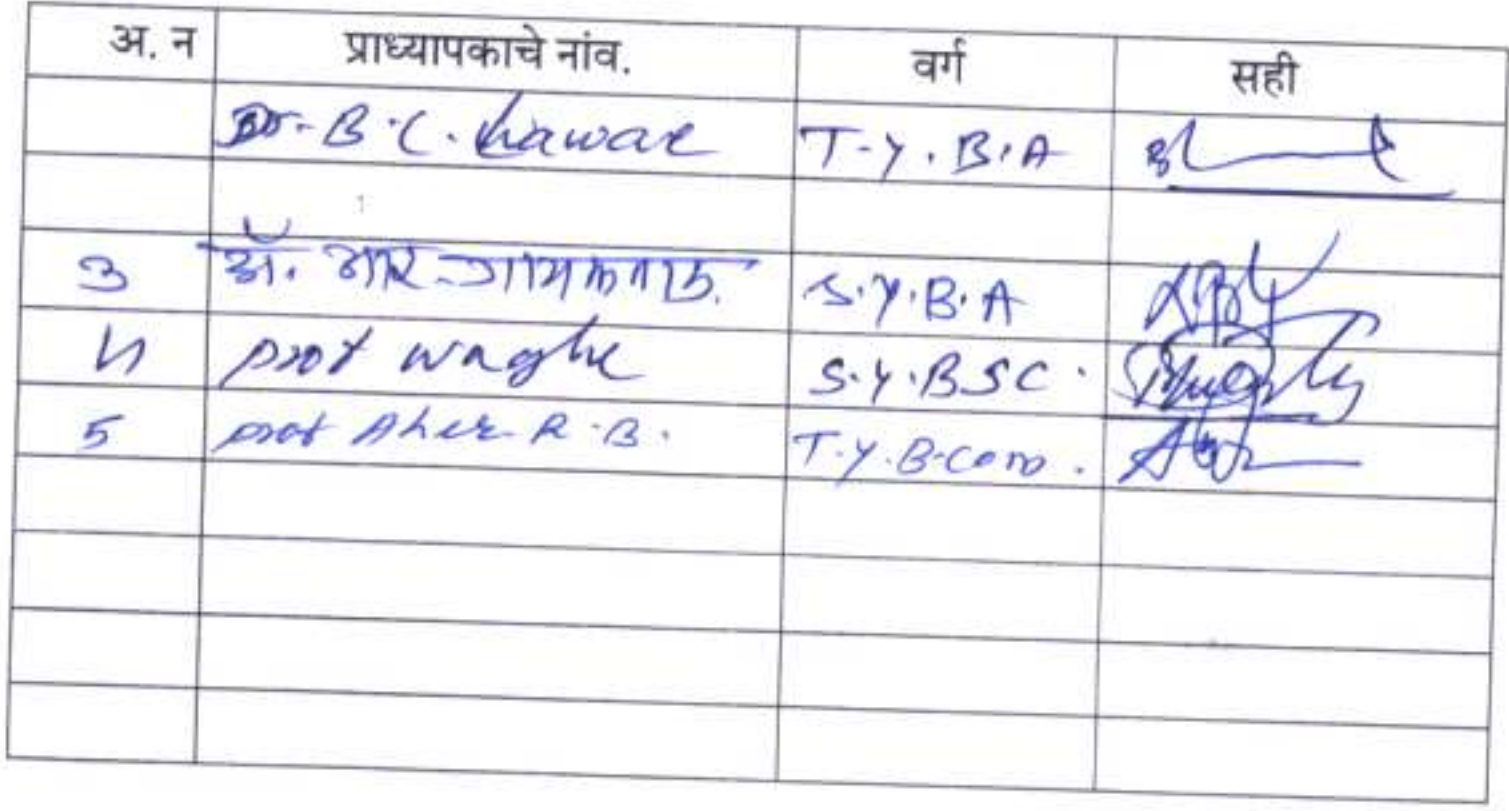 अ. न प्राध्यापकाचे नांव. वर्ग सही
Dr. B.C. T.Y.B.A
3 डॉ. आर. S.Y.B.A
4 prof waghe S.Y.BSC.
5 prof Aher R.B. T.Y.B.Com.